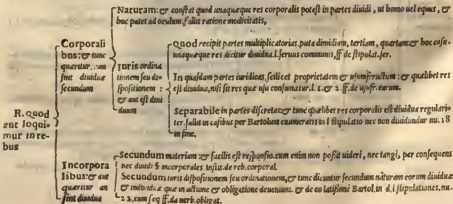 Naturam: & constat quod unaquæque res corporalis potest in partes diuidi, ut homo uel equus, &
hoc patet ad oculum, fallit ratione modicitatis,
Corporali
bus: & tunc
quæritur, an
sint diuiduæ
secundum
Iuris ordina
tionem seu di-
spositionem :
& aut est diui
duum
quod recipit partes multiplicatorias, puta dimidiam, tertiam, quartam: & hoc casu
unaquæque res dicitur diuidua. l. seruus communis, ff. de stipulat. ser.
In quasdam partes iuridicas, scilicet proprietatem & usumfructum : & quælibet res
est diuidua, nisi sit res quæ usu consumatur. l. 1. & 2. ff. de usufr. earum.
Separabile in partes discretas: & tunc quælibet res corporalis est diuidua regulari-
ter. fallit in casibus per Bartolum enumeratis in l. stipulatio nec non diuidundær nu. 18
in fine.
R. quod
aut loqui-
mur in re-
bus
Incorpora
libus: & aut
quæritur an
sint diuiduæ
Secundum materiam: & facilis est responsio. cum enim non possit uideri, nec tangi, per consequens
nec diuidi. § incorporales instit. de reb. corporal.
Secundum iuris dispositionem seu ordinationem, & tunc dicuntur secundum naturam eorum diuiduæ
& indiuiduæ quæ in actione & obligatione deueniunt. & de eo latissimè Bartol. in d. l. stipulationes. nu.
22. cum seq. ff. de uerb. obligat.